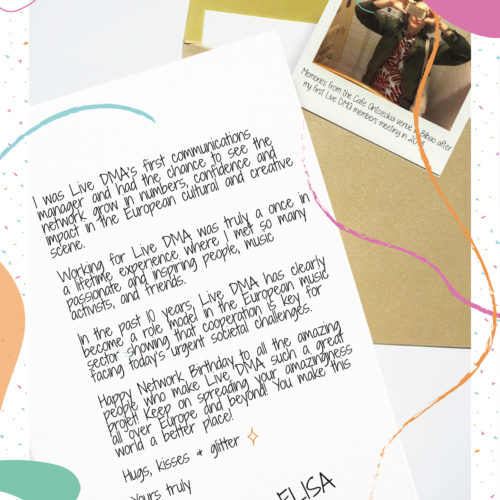 Memories from the Cafe Antzokia venue in Bilbao after
my first Live DMA members meeting in
I was Live DMA's first communications
manager and had the chance to see the
network grow in numbers, confidence and
impact in the European cultural and creative
scene.
Working for Live DMA was truly a once in
a lifetime experience where I met so many
passionate and inspiring people, music
activists, and friends.
In the past 10 years, Live DMA has clearly
become a role model in the European music
sector showing that cooperation is key for
facing today's urgent societal challenges.
Happy Network Birthday to all the amazing
people who make Live DMA such a great
projet! Keep on spreading your amazingness
all over Europe and beyond! You make this
world a better place!
Hugs, kisses + glitter
Yours truly
ELISA